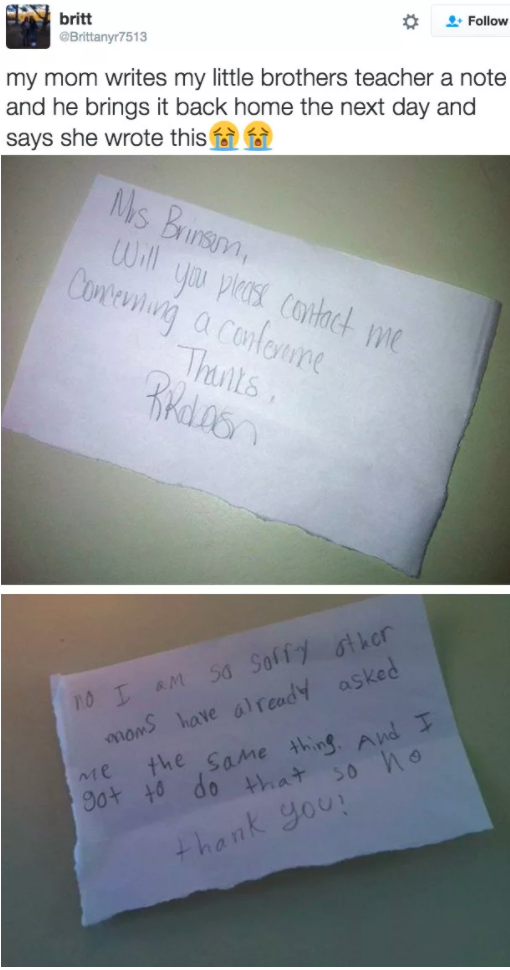 britt
@Brittanyr7513
Follow
my mom writes my little brothers teacher a note
and he brings it back home the next day and
says she wrote this😭😭
Mrs Brinson,
Will you please contact me
Concerning a conference
Thanks,
no I am so sorry other
moms have already asked
me the same thing. And I
got to do that so no
thank you!